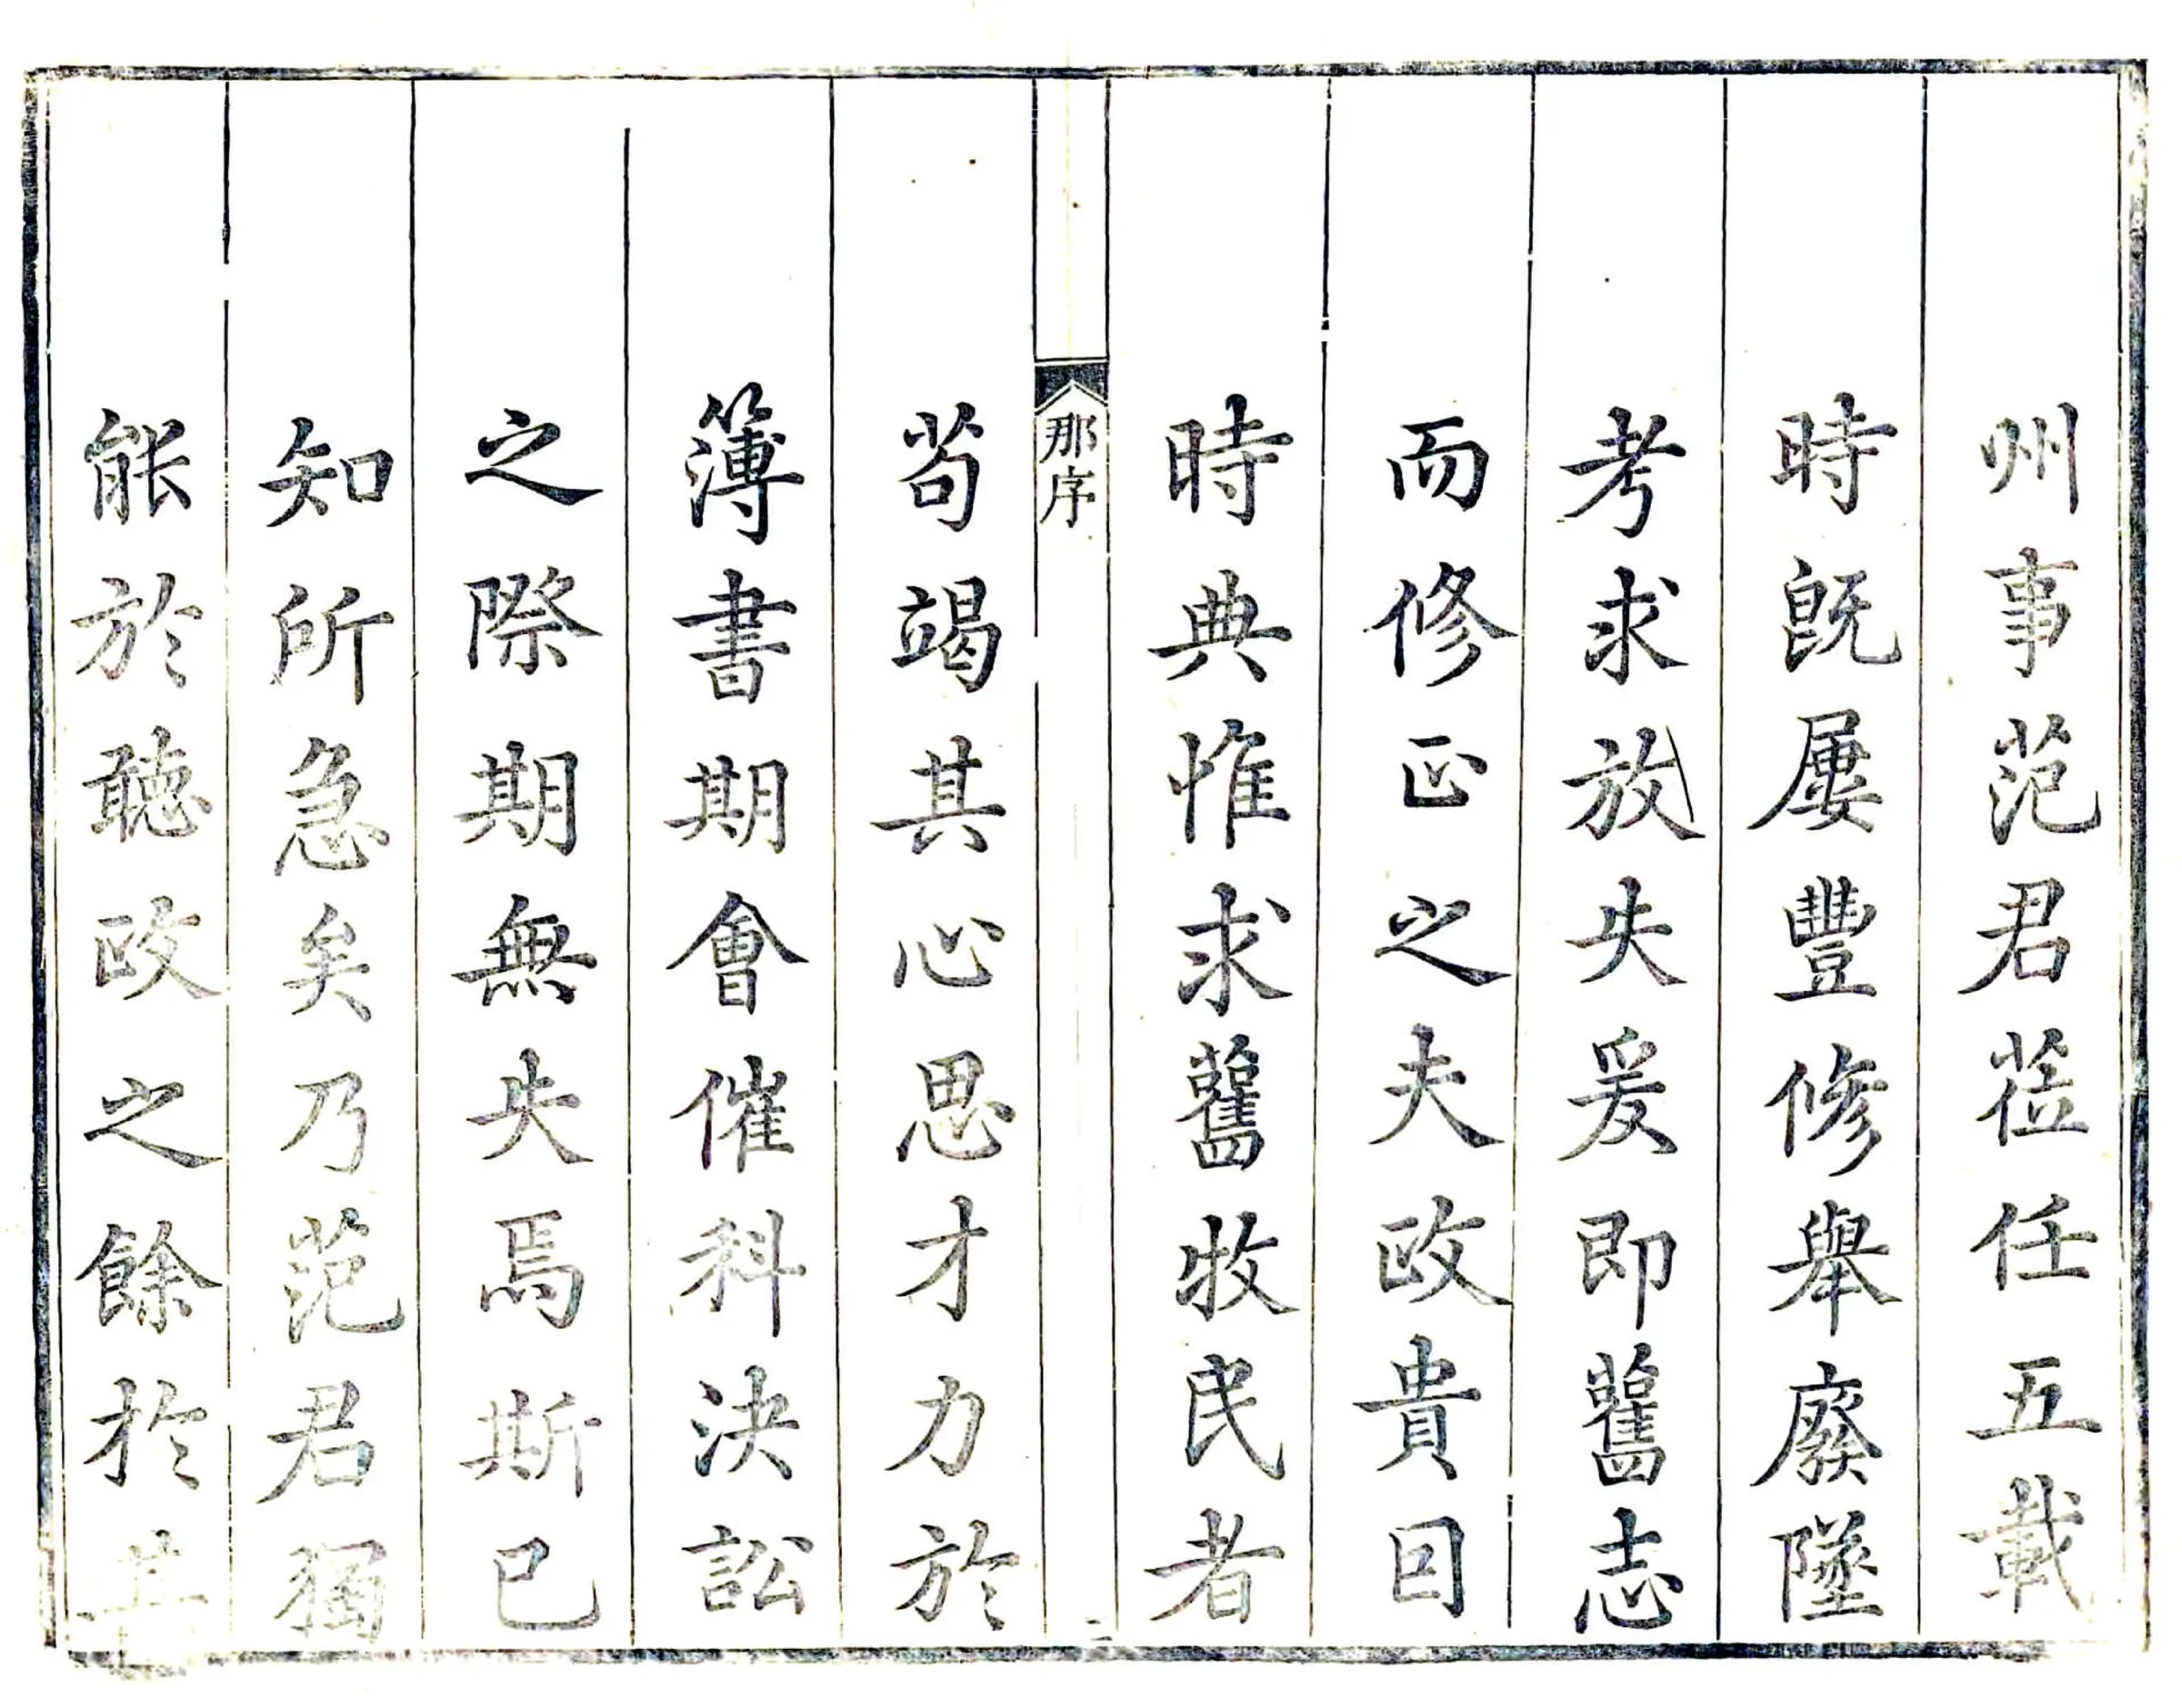 州事范君莅任五載
時旣屢豐修舉廢墜
考求放失爰即舊志
而修正之夫政貴因
時典惟求舊牧民者
那序
二
茍竭其心思才力於
簿書期會催科決訟
之際期無失焉斯已
知所急矣乃范君獨
能於聽政之餘於